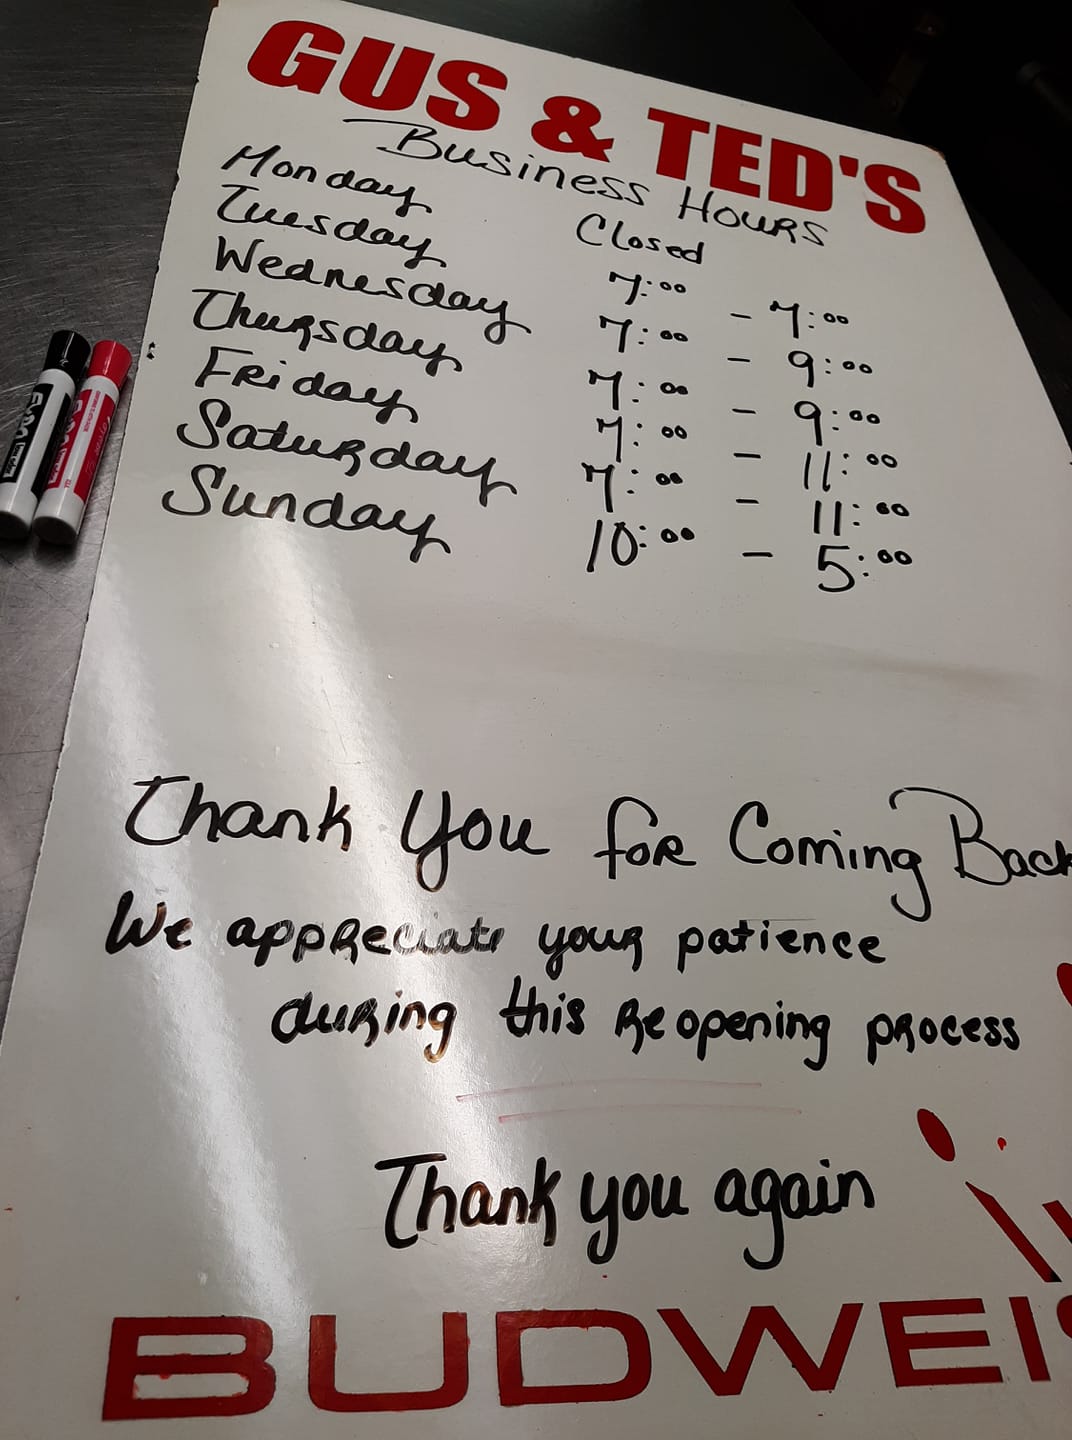 GUS & TED'S
Business Hours
Monday Closed
Tuesday 7:00 - 7:00
Wednesday 7:00 - 9:00
Thursday 7:00 - 9:00
Friday 7:00 - 11:00
Saturday 7:00 - 11:00
Sunday 10:00 - 5:00
Thank You for Coming Back
We appreciate your patience
during this Reopening process
Thank you again
BUDWEIS
EXPO
EXPO